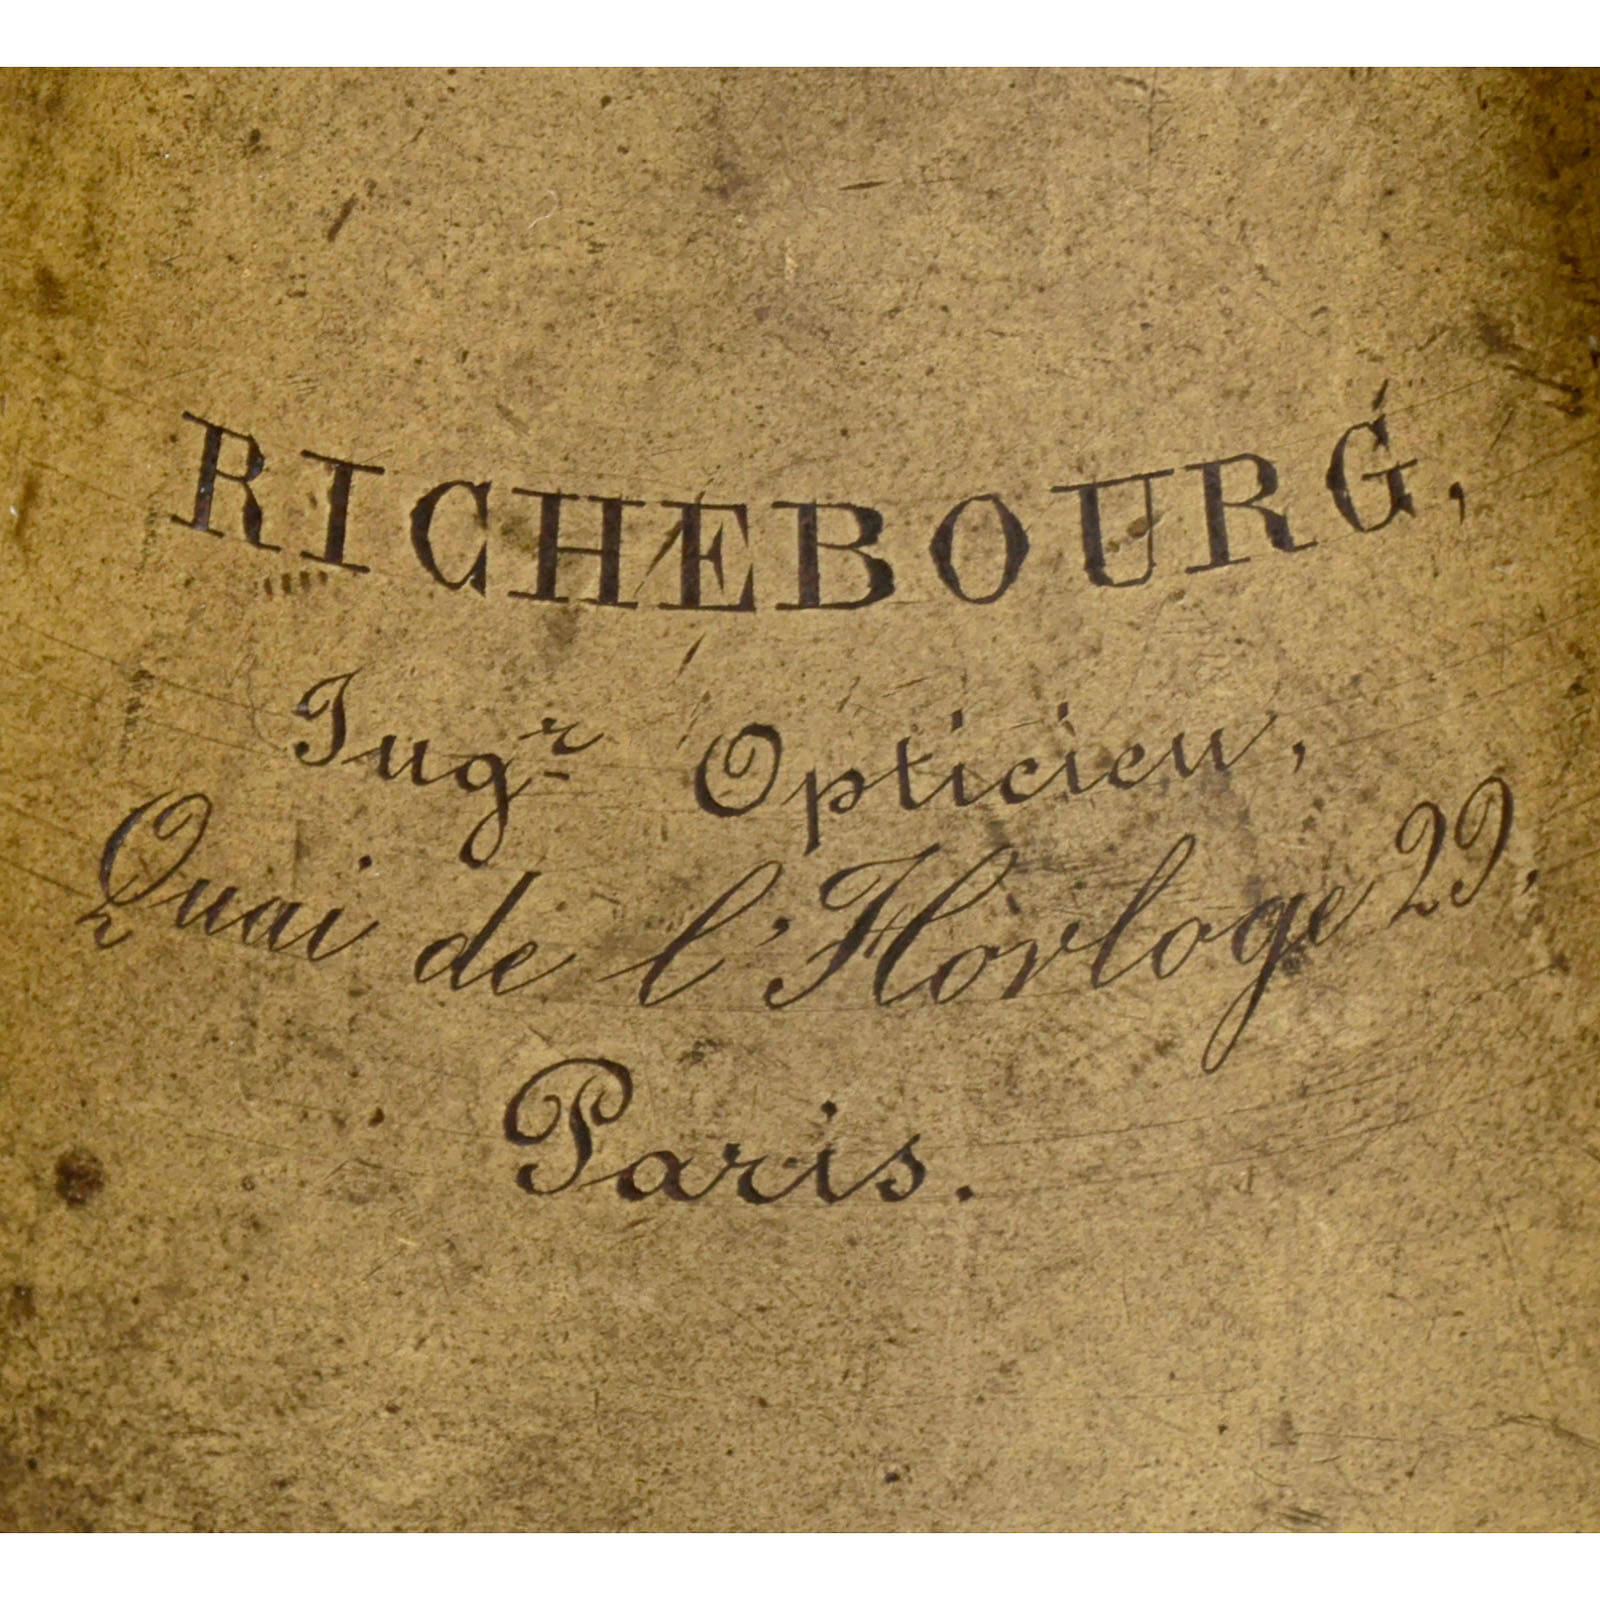 RICHEBOURG,
Ingr Opticien,
Quai de l'Horloge 29,
Paris.